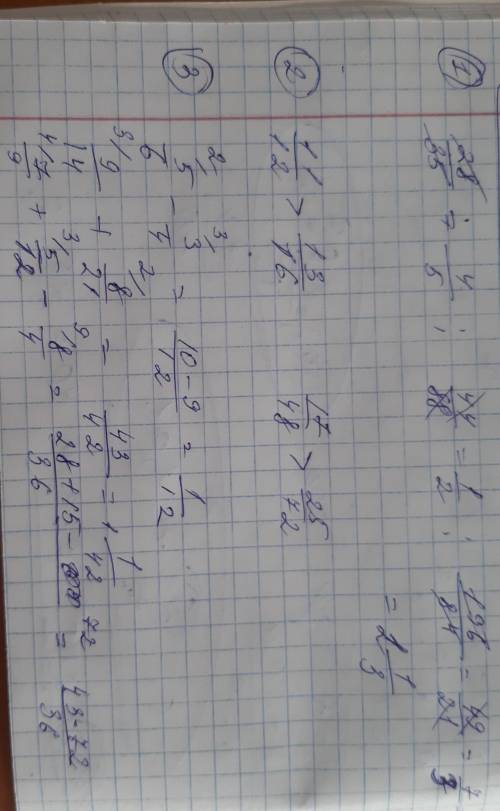 ① 28/35 = 4/5 ; 44/88 = 1/2 ; 196/84 = 49/21 = 7/3
= 2 1/3
② 11/12 > 13/16 17/48 > 25/72
③ 5/6 - 3/4 = 10-9/12 = 1/12
9/14 + 8/21 = 43/42 = 1 1/42
7/9 + 5/12 - 8/4 = 28+15-72/36 = 43-72/36